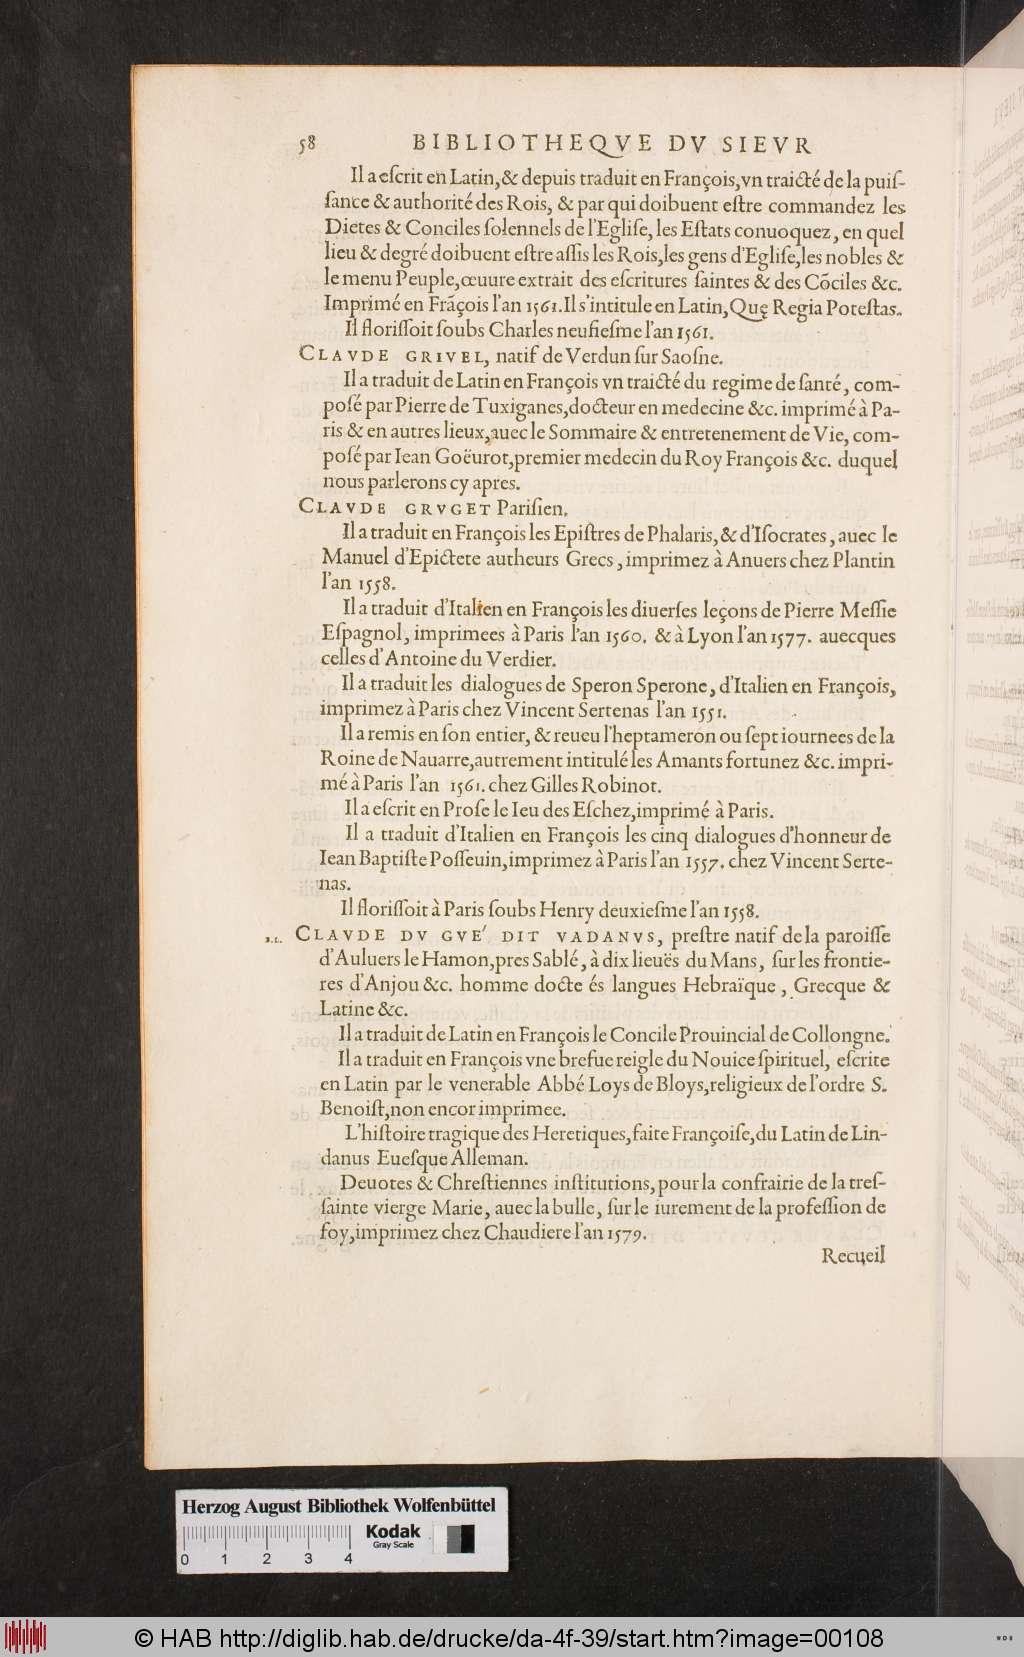 58 BIBLIOTHEQVE DV SIEVR
Il a eſcrit en Latin, & depuis traduit en François, vn traicté de la puiſ-
ſance & authorité des Rois, & par qui doibuent eſtre commandez les
Dietes & Conciles ſolennels de l'Egliſe, les Eſtats conuoquez, en quel
lieu & degré doibuent eſtre aſſis les Rois, les gens d'Egliſe, les nobles &
le menu Peuple, œuure extrait des eſcritures ſaintes & des Cõciles &c.
Imprimé en Frãçois l'an 1561. Il s'intitule en Latin, Quę Regia Poteſtas.
Il floriſſoit ſoubs Charles neufieſme l'an 1561.
CLAVDE GRIVEL, natif de Verdun ſur Saoſne.
Il a traduit de Latin en François vn traicté du regime de ſanté, com-
poſé par Pierre de Tuxiganes, docteur en medecine &c. imprimé à Pa-
ris & en autres lieux, auec le Sommaire & entretenement de Vie, com-
poſé par Iean Goëurot, premier medecin du Roy François &c. duquel
nous parlerons cy apres.
CLAVDE GRVGET Pariſien.
Il a traduit en François les Epiſtres de Phalaris, & d'Iſocrates, auec le
Manuel d'Epictete autheurs Grecs, imprimez à Anuers chez Plantin
l'an 1558.
Il a traduit d'Italien en François les diuerſes leçons de Pierre Meſſie
Eſpagnol, imprimees à Paris l'an 1560. & à Lyon l'an 1577. auecques
celles d'Antoine du Verdier.
Il a traduit les dialogues de Speron Sperone, d'Italien en François,
imprimez à Paris chez Vincent Sertenas l'an 1551.
Il a remis en ſon entier, & reueu l'heptameron ou ſept iournees de la
Roine de Nauarre, autrement intitulé les Amants fortunez &c. impri-
mé à Paris l'an 1561. chez Gilles Robinot.
Il a eſcrit en Proſe le Ieu des Eſchez, imprimé à Paris.
Il a traduit d'Italien en François les cinq dialogues d'honneur de
Iean Baptiſte Poſſeuin, imprimez à Paris l'an 1557. chez Vincent Serte-
nas.
Il floriſſoit à Paris ſoubs Henry deuxieſme l'an 1558.
CLAVDE DV GVE' DIT VADANVS, preſtre natif de la paroiſſe
d'Auluers le Hamon, pres Sablé, à dix lieuës du Mans, ſur les frontie-
res d'Anjou &c. homme docte és langues Hebraïque, Grecque &
Latine &c.
Il a traduit de Latin en François le Concile Prouincial de Collongne.
Il a traduit en François vne brefue reigle du Nouice ſpirituel, eſcrite
en Latin par le venerable Abbé Loys de Bloys, religieux de l'ordre S.
Benoiſt, non encor imprimee.
L'hiſtoire tragique des Heretiques, faite Françoiſe, du Latin de Lin-
danus Eueſque Alleman.
Deuotes & Chreſtiennes inſtitutions, pour la confrairie de la treſ-
ſainte vierge Marie, auec la bulle, ſur le iurement de la profeſſion de
foy, imprimez chez Chaudiere l'an 1579.
Recueil
Herzog August Bibliothek Wolfenbüttel
0 1 2 3 4
Kodak
Gray Scale
© HAB http://diglib.hab.de/drucke/da-4f-39/start.htm?image=00108